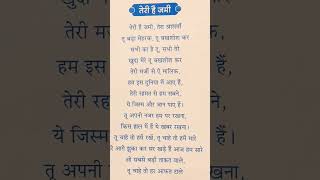 तेरी है जमी
तेरी है जमी, तेरा आसमाँ
तू बड़ा मेहरबा, तू बख्शीश कर
सभी का है तू, सभी तेरे
खुदा मेरे तू बख्शीश कर
तेरी मर्जी से ऐ मालिक,
हम इस दुनिया में आए हैं,
तेरी रहमत से हम सबने,
ये जिस्म और जान पाए हैं।
तू अपनी नजर हम पर रखना,
किस हाल में हैं ये खबर रखना।
तू चाहे तो हमें रखे, तू चाहे तो हमें मारे
आगे झुका कर सर खड़े हैं आज हम सारे
सबसे बड़ी ताकत वाले,
तू चाहे तो हर आफत टाले
हम इस
तेरी रह
ये जिस्म
तू अपनी